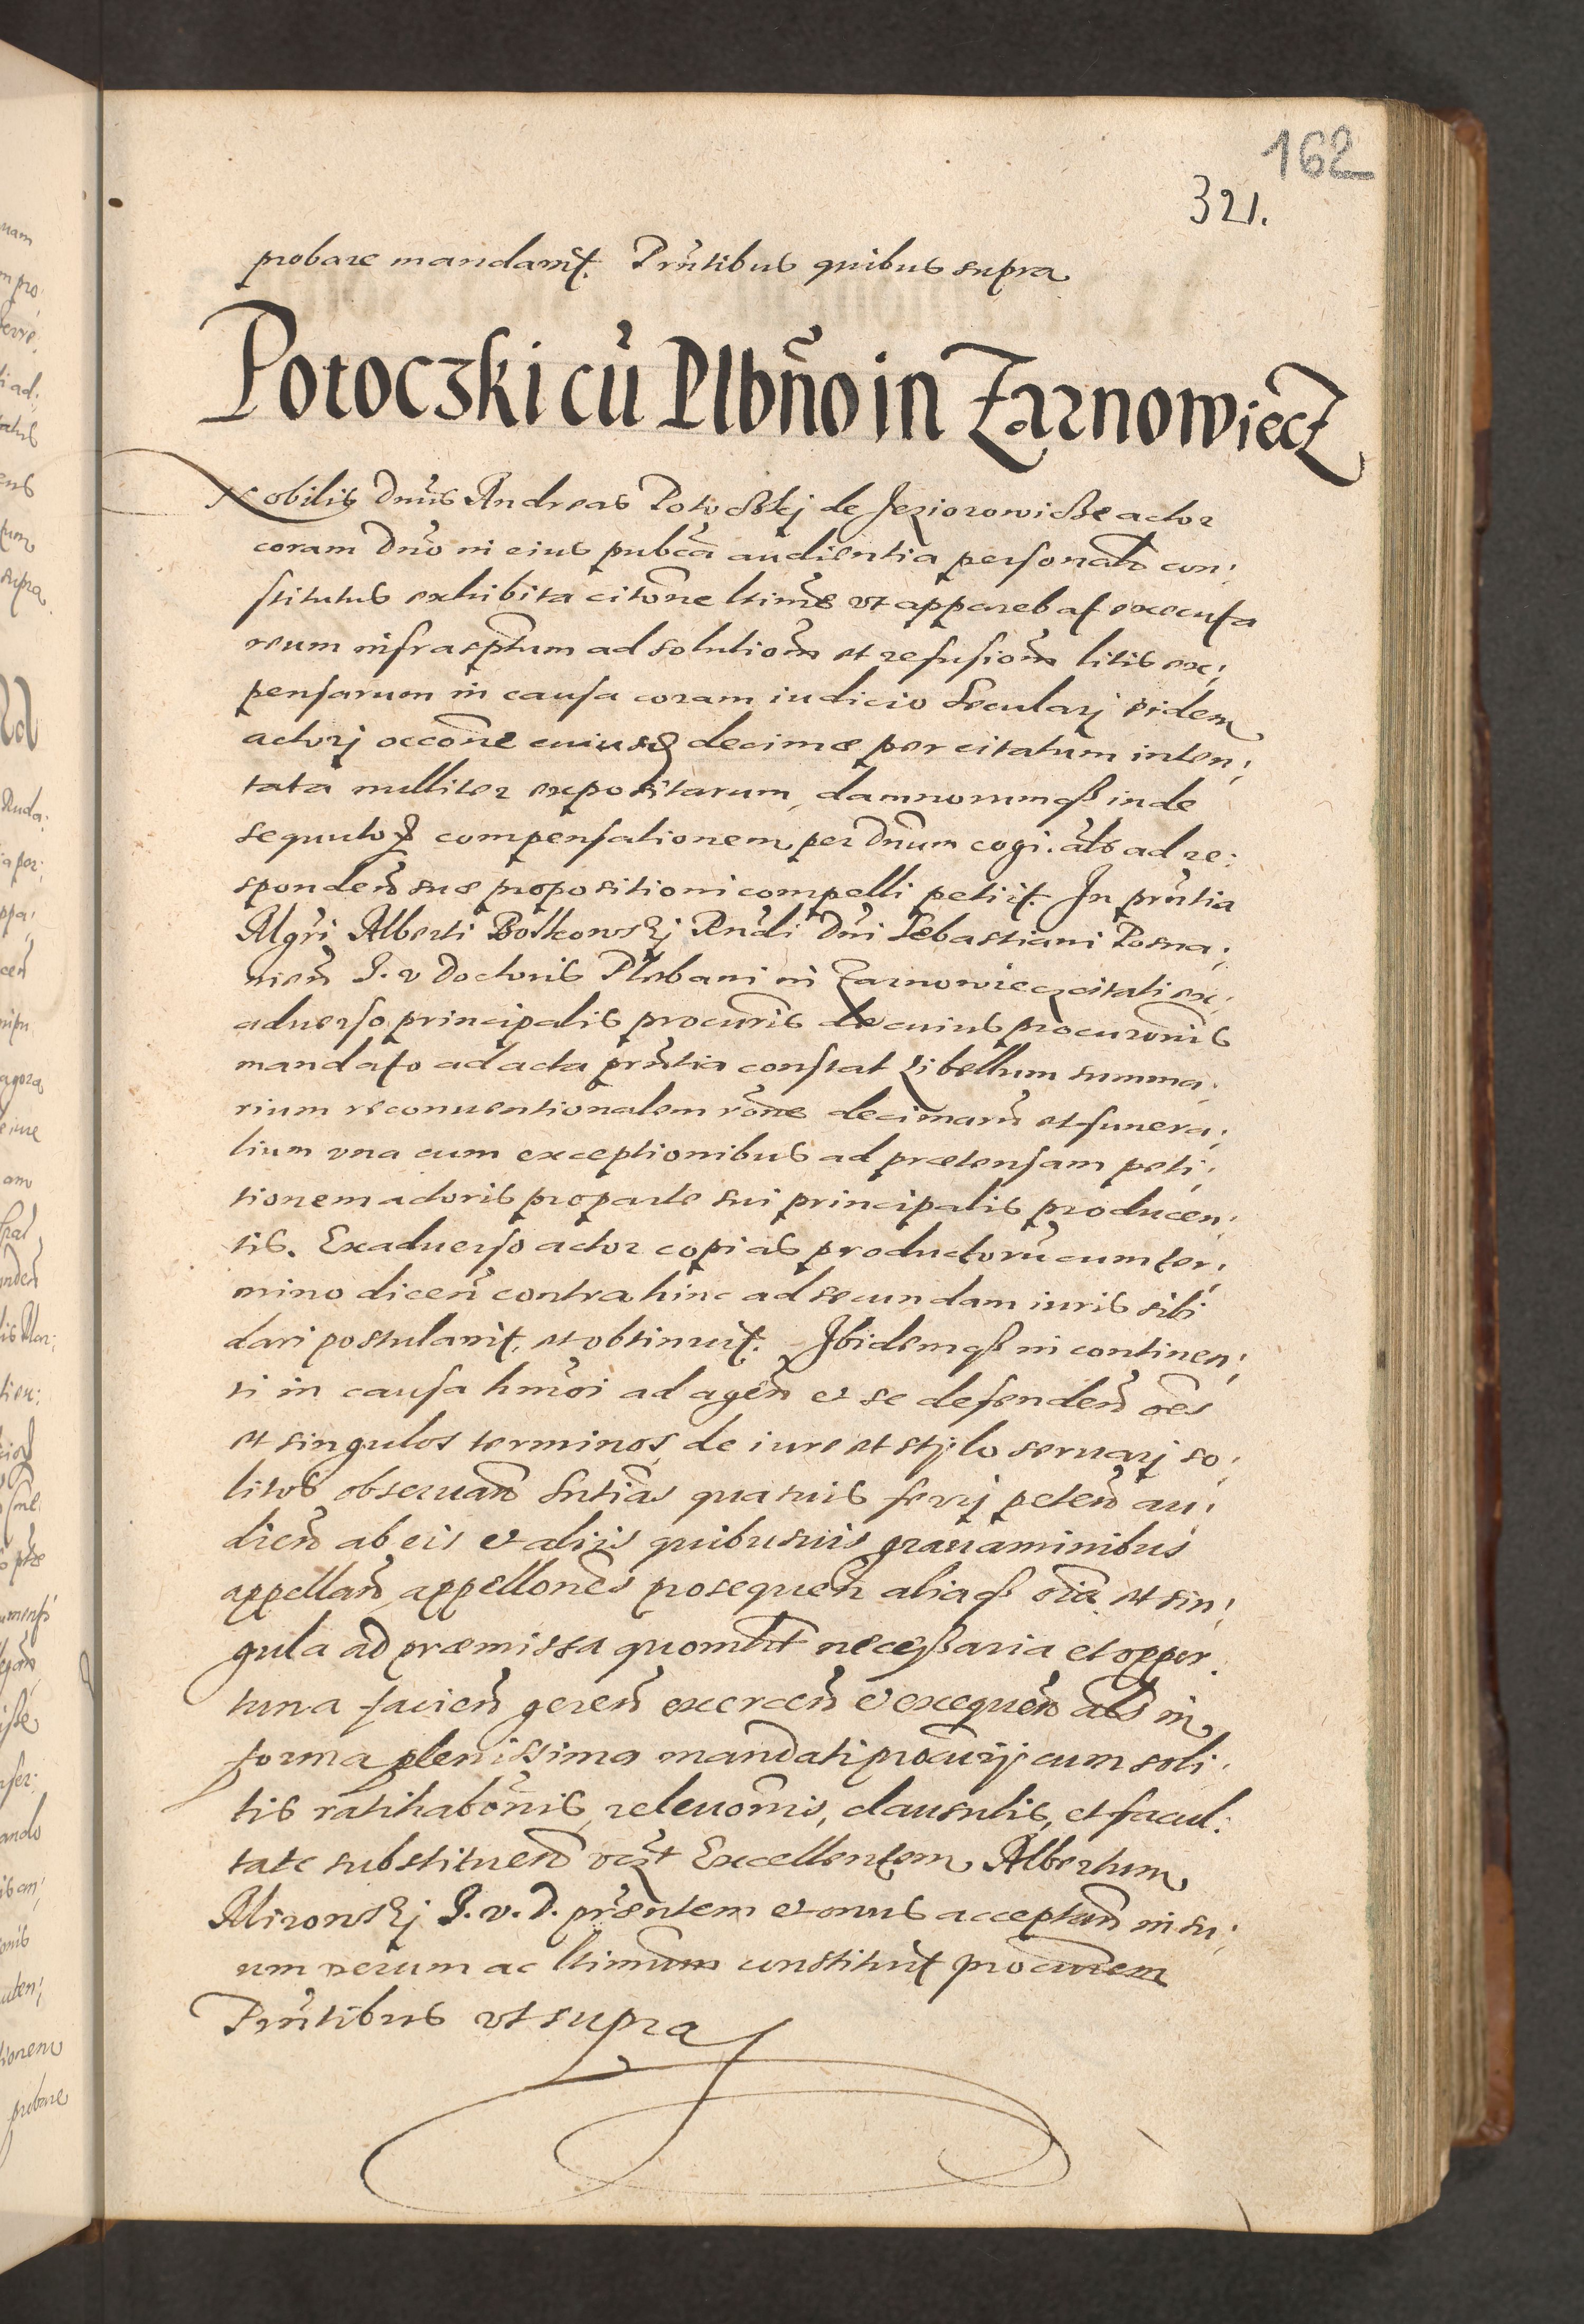 162
321.
probare mandavit. Prñtibus quibus supra
Potoczki cũ Plbño in Żarnowiecz
Nobilis Dnũs Andreas Potoczkj de Jeziorowicze actor
coram Dnõ in eius pubca audientia personalr con;
stitutus exhibita citõne ltimẽ vt apparebat executa
reum infrasptum ad solutiom̃ et refusiom̃ litis ex;
pensarum in causa coram iudicio Secularj eidem
actorj occõne cuiusq decimæ per citatum inten;
tata nulliter expositarum, damnorumqз inde
sequutoꝝ compensationem per Dnũm cogi. als ad re;
spondeñ suæ propositioni compelli petiit. In prñtia
Mgri Alberti Boskowskj Rndi Dni Sebastiani Posna;
nieñ J. v Doctoris Plebani in Zarnowiecz citati ex;
aduerso principalis procuris de cuius procuronis
mandato ad acta prñtia constat Libellum summa;
rium reconuentionalem rõne decimarũ et funera;
lium vna cum exceptionibus ad prætensam peti;
tionem actoris pro parte sui principalis producen;
tis. Exaduerso actor copias productorũ cum ter;
mino diceñ contra hinc ad secundam iuris sibi
dari postulavit, et obtinuit. Ibidemqз in continen;
ti in causa hm̃oi ad ageñ et se defendeñ oẽs
et singulos terminos de iure et stylo seruarj so;
litos obseruañ Sntĩas quasuis ferrj peteñ au;
dieñ ab eis et aliis quibusuis grauaminibus
appellañ appellonẽs prosequeñ aliaqз oĩa et sin;
gula ad præmissa quomlt necessaria et oppor;
tuna facieñ gereñ exerceñ et exequeñ als in
forma plenissima mandati procurij cum soli;
tis ratihabõnis, releuõnis, clausulis, et facul;
tate substitueñ Excellentem Albertum
Mironskj J. v. D. prẽntem et onus acceptañ in su;
um verum ac ltimum constituit procurem
Prñtibus vt supra